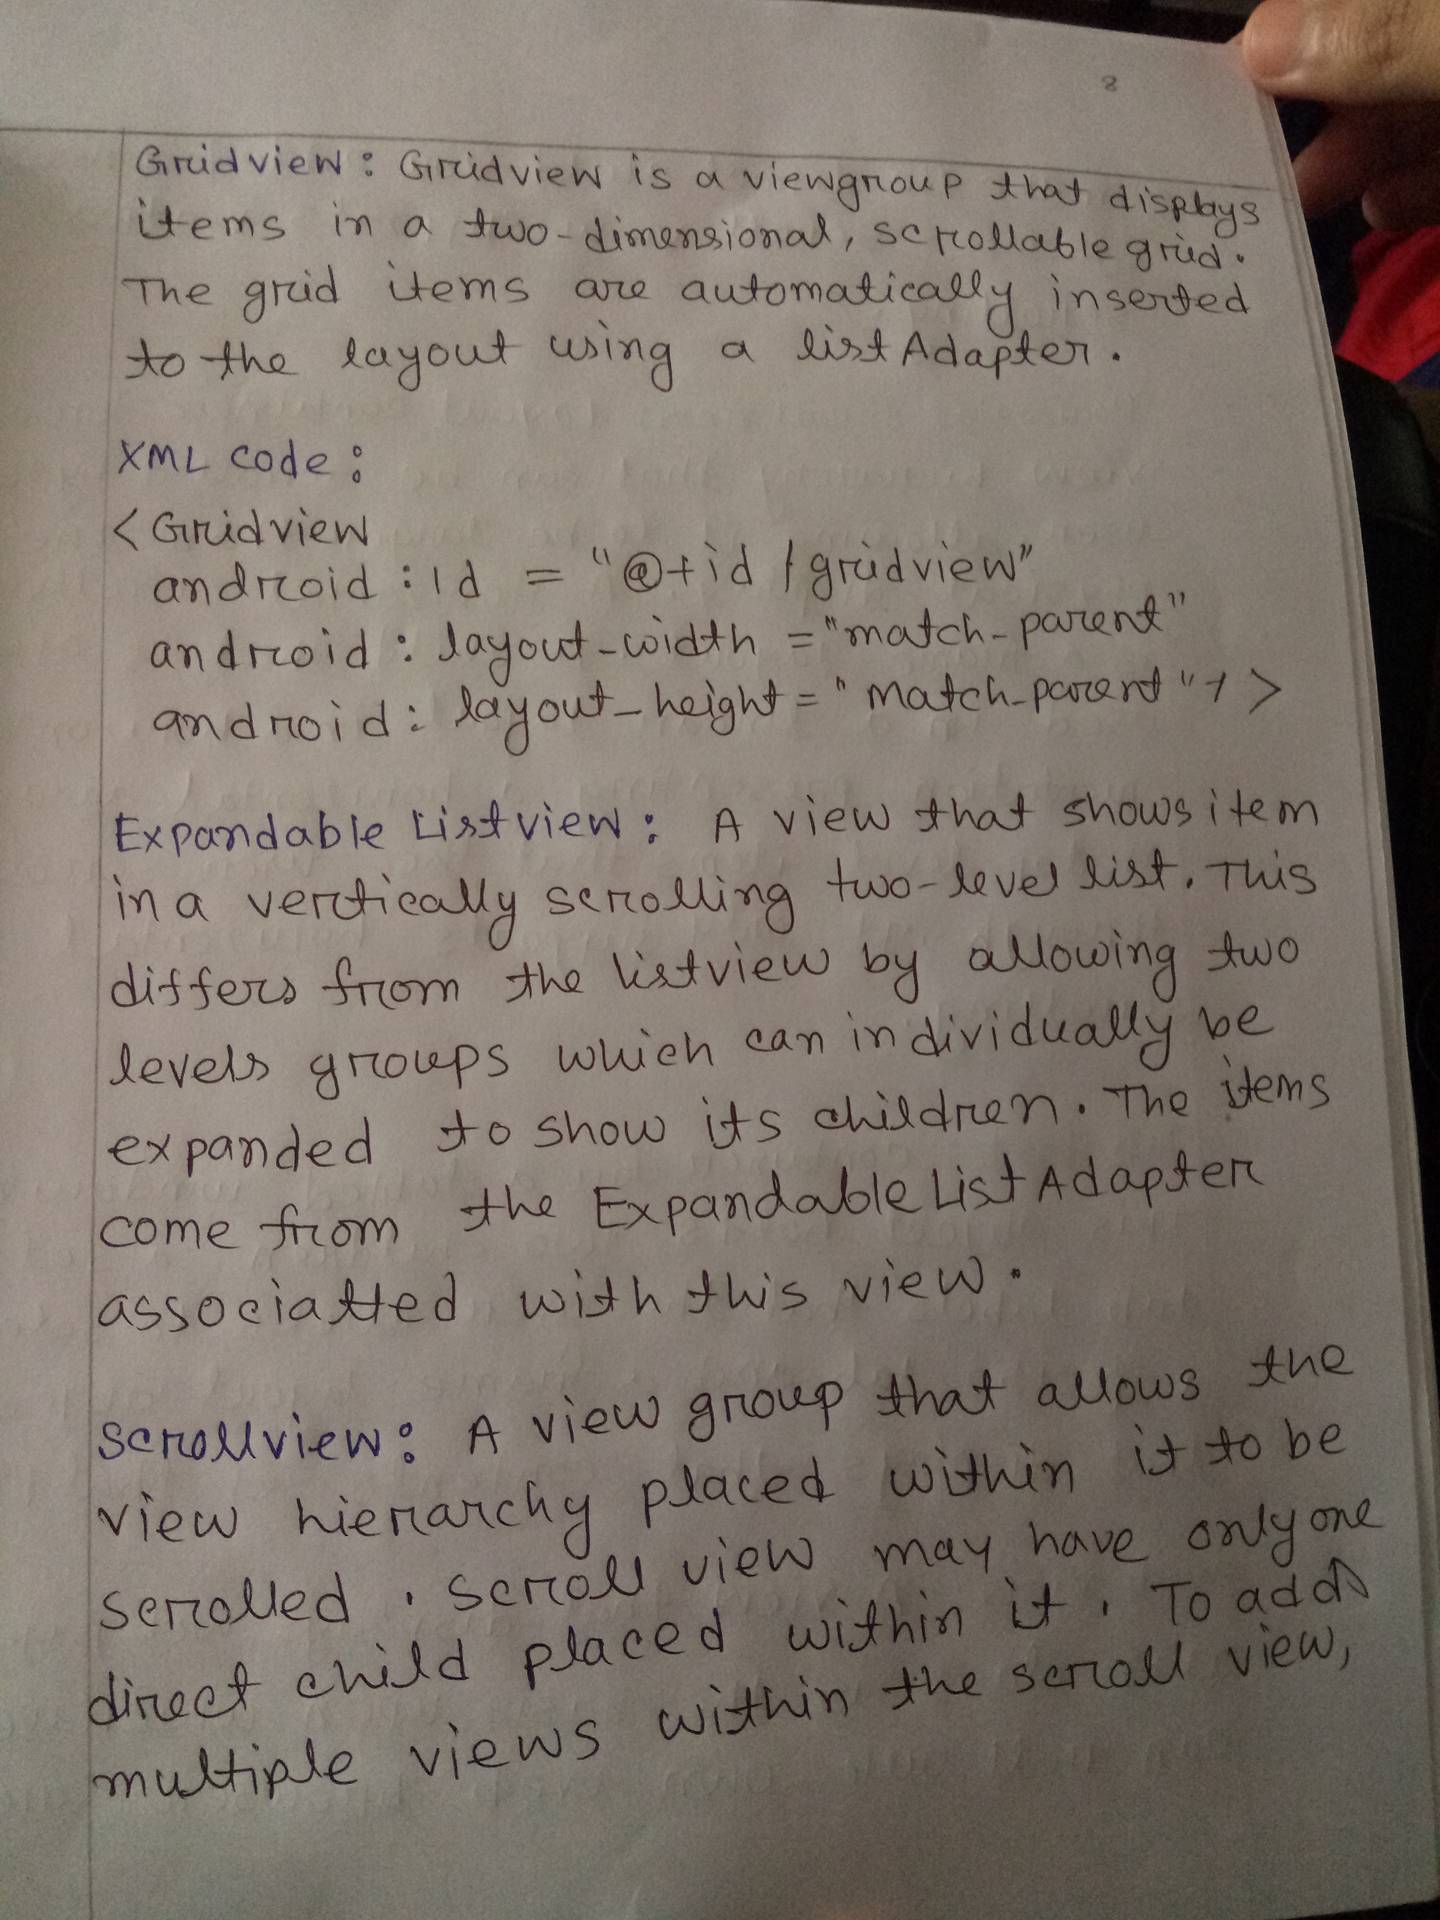 8
Gridview: Gridview is a viewgroup that displays
items in a two-dimensional, scrollable grid.
The grid items are automatically inserted
to the layout using a list Adapter.
XML code:
< Gridview
android : id = "@+id / gridview"
android : layout_width = "match_parent"
android : layout_height = "match_parent" / >
Expandable Listview: A view that shows item
in a vertically scrolling two-level list. This
differs from the listview by allowing two
levels groups which can individually be
expanded to show its children. The items
come from the Expandable List Adapter
associatted with this view.
Scrollview: A view group that allows the
view hierarchy placed within it to be
scrolled. scroll view may have only one
direct child placed within it. To add
multiple views within the scroll view,